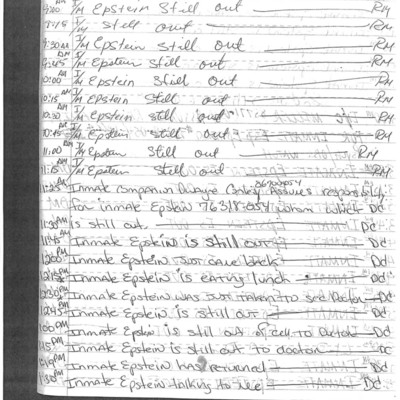 9:00 I/M Epstein Still out RM
9:15 I/M Still out RM
9:30 AM I/M Epstein Still out RM
9:45 I/M Epstein Still out RM
10:00 AM I/M Epstein Still out RM
10:15 AM I/M Epstein Still out RM
10:30 I/M Epstein Still out RM
10:45 I/M Epstein Still out RM
11:00 AM I/M Epstein Still out RM
11:15 AM I/M Epstein Still out RM
11:25 Inmate Companion Assumes responsibility
for inmate Epstein 76318-054 whom which DC
11:30 is still out. DC
11:45 Inmate Epstein is still out DC
12:00 PM Inmate Epstein Just came back DC
12:15 PM Inmate Epstein is eating lunch DC
12:30 PM Inmate Epstein was just taken to see Doctor DC
12:45 PM Inmate Epstein is still out DC
1:00 PM Inmate Epstein is still out of cell to Doctor DC
1:15 PM Inmate Epstein is still out to doctor DC
1:19 PM Inmate Epstein has returned DC
1:30 PM Inmate Epstein talking to me DC